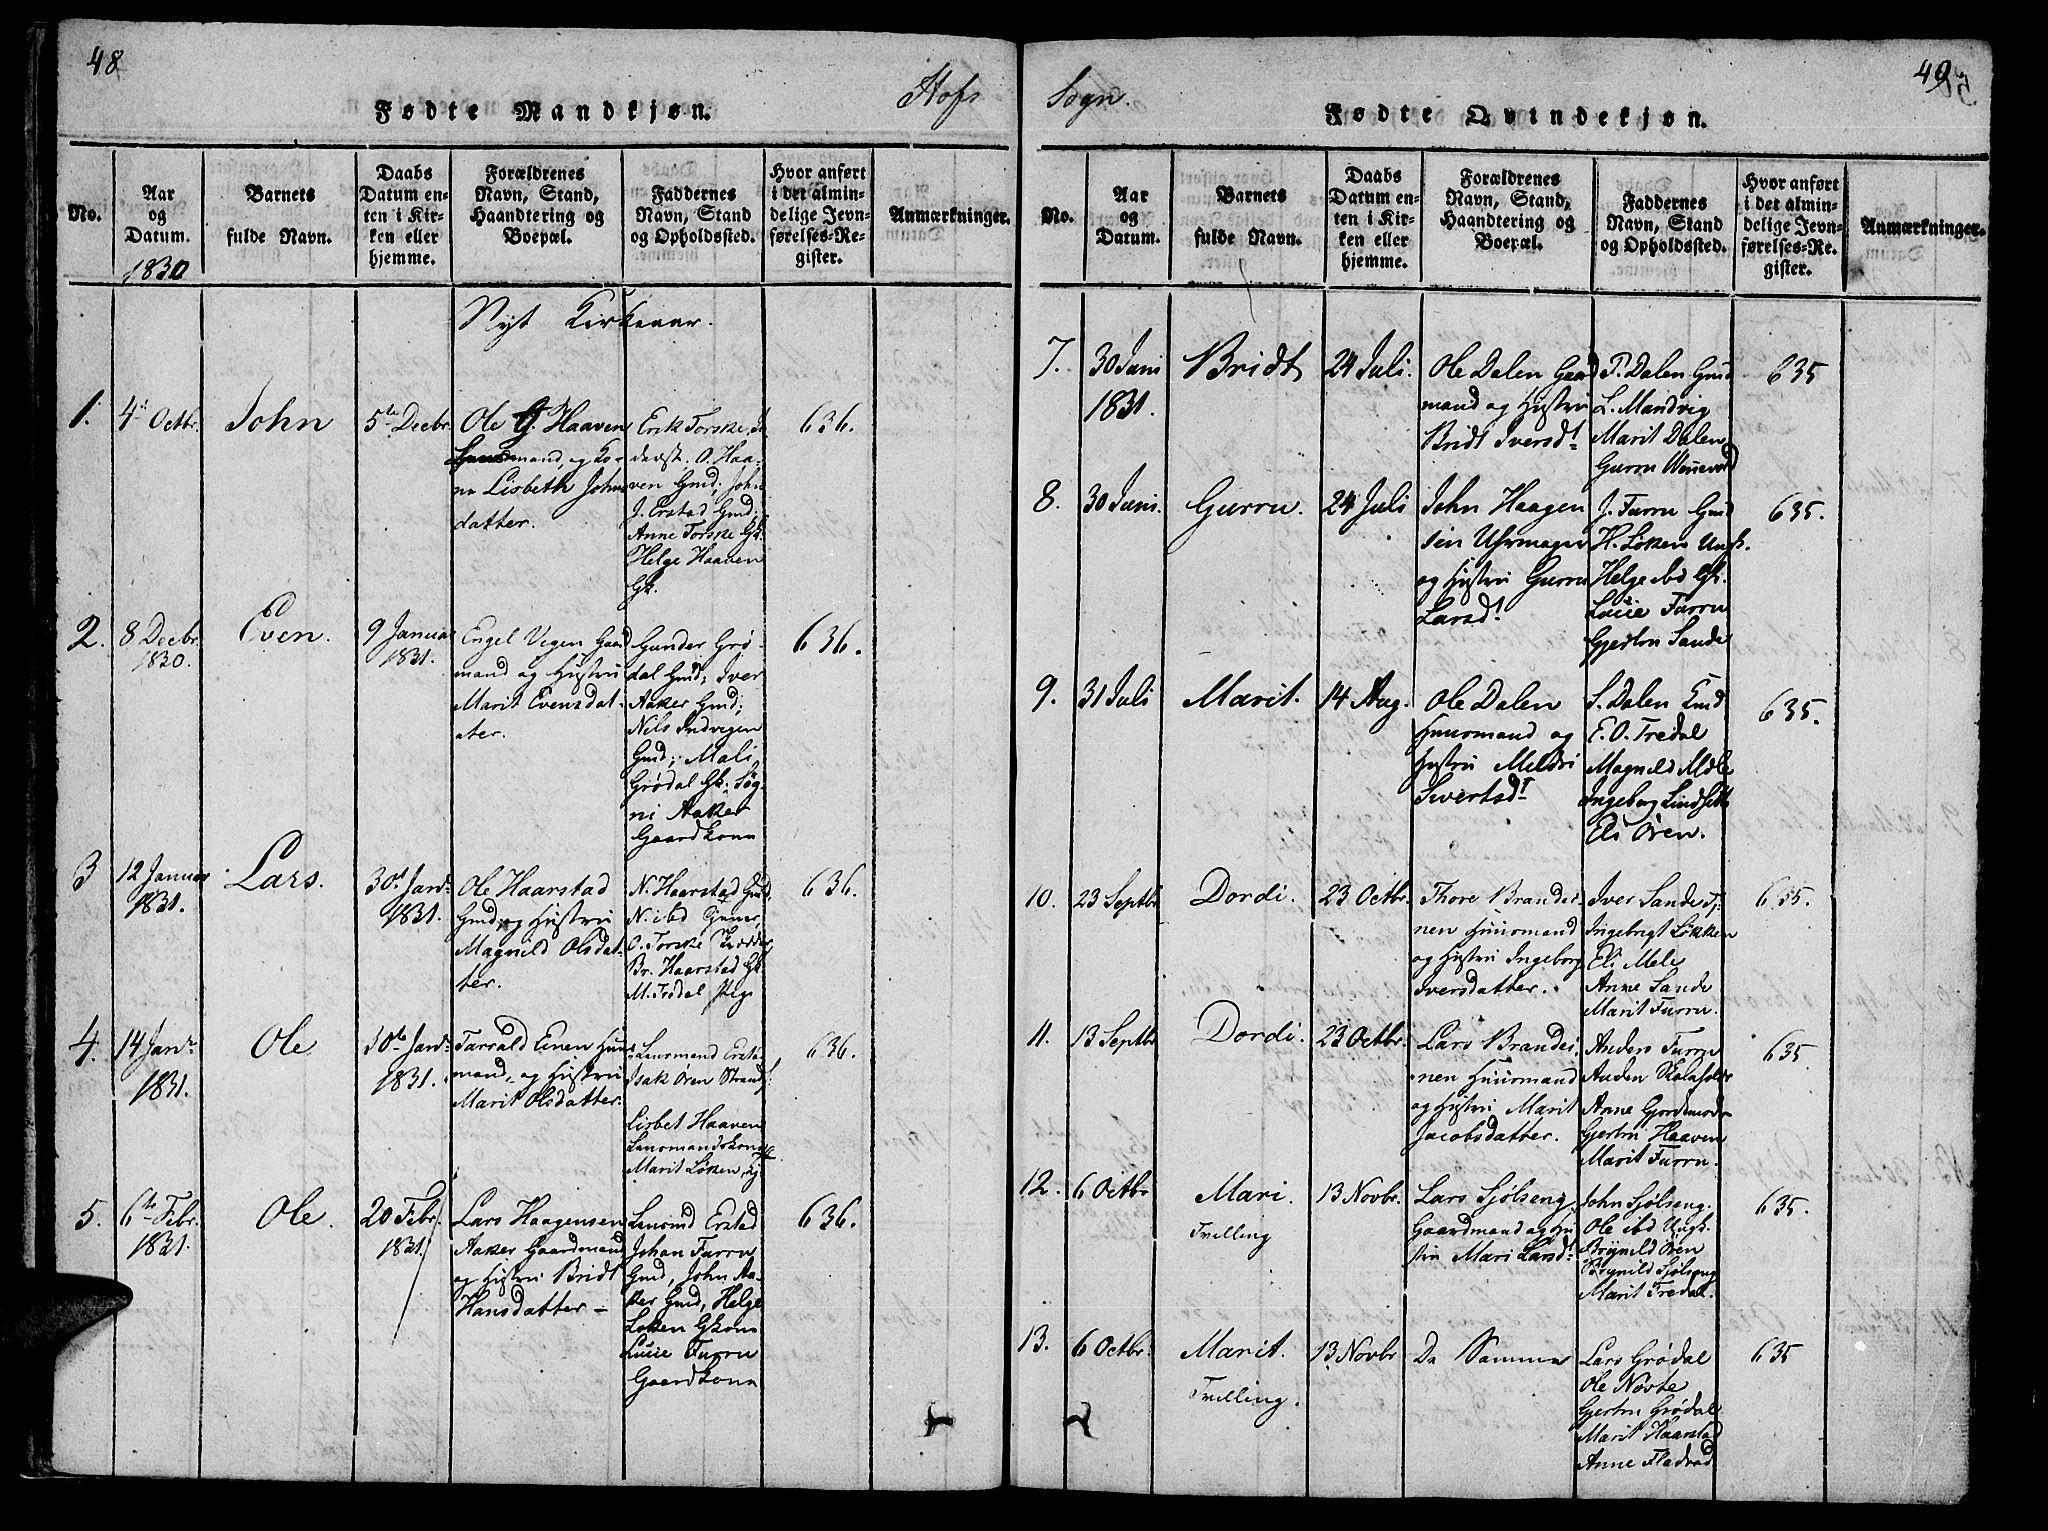 48
Hofs
Fødte Mandkjøn.
No.
Aar
og
Datum.
1830
Barnets
fulde Navn.
Daabs
Datum en-
ten i Kir-
ken eller
hjemme.
Forældrenes
Navn, Stand,
Haandtering og
Boepæl.
Faddernes
Navn, Stand
og Opholdssted.
Hvor anført
i det almin-
delige Jevn-
førelses-Re-
gister.
Anmærkninger.
Nyt Kirkeaar.
1.
4de Octbr.
John
5te Decbr
Ole G. Haaven
mand, og Ko-
na Lisbeth Johns
datter.
Erik Torske,
O. Haa-
ven Gmd; John
J. Erstad Gmd;
Anne Torske Gk.
Helge Haaven
Gk.
636.
2.
8 Decbr.
1830.
Even.
9 Januar
1831.
Engel Vegen Gaard
mand og Hustru
Marit Evensdat-
ater.
Gunder Grø-
dal Gmd; Iver
Aaker Gmd;
Nils Indvegen
Gmd; Mali
Grødal Gk. Søg-
ni Aaker
Gaardkona
636.
3
12 Januar
1831.
Lars.
30te Janr.
1831.
Ole Haarstad
Gmd, og Hustru
Magnild Olsdat-
ter.
N. Haarstad Gmd,
N. ibd
O. Torske
Br. Haarstad Gk.
M. Tredal Pige
636.
4.
14 Janr.
1831.
Ole
30te Janr.
1831.
Tarrald Enen Huus
mand, og Hustru
Marit Olsdatter.
Lensmand Erstad,
Isak Øren Strands.
Lisbet Haaven
Lensmandskone
Marit Løken,
636.
5.
6te Febr.
1831.
Ole.
20 Febr.
1831.
Lars Haagensen
Aaker Gaardmand
og Hustru Bridt
Hansdatter –
Lensmd Erstad
Johan Furru
Gmd, John Aa-
ker Gmd, Helge
Løken Gkona
Lucie Furru
Gaardkona
636.
Sogn.
49
Fødte Qvindekjøn.
No.
Aar
og
Datum.
Barnets
fulde Navn.
Daabs
Datum en-
ten i Kir-
ken eller
hjemme.
Forældrenes
Navn, Stand,
Haandtering og
Boepæl.
Faddernes
Navn, Stand
og Opholdssted.
Hvor anført
i det almin-
delige Jevn-
førelses-Re-
gister.
Anmærkninger.
7.
30 Juni
1831.
Bridt
24 Juli.
Ole Dalen Gaard
mand og Hustru
Bridt Iversdt
P. Dalen Gmd
L. Mandvig
Marit Dalen
Gurru
635
8.
30 Juni.
Gurru.
24 Juli
John Haagen
sen Uhrmager
og Hustru Gurru
Larsdt.
J. Furru Gmd
H. Løken Ungk.
Helge ibd Gk.
Lucie Furru
Gjertru Sande
635.
9.
31 Juli
Marit.
14 Aug.
Ole Dalen
Huusmand og
Hustru Meldri
Sivertsdt
S. Dalen Gmd
E. O. Tredal
Magnild Mele
Ingeborg Lindset
Eli Øren.
635.
10.
23 Septbr
Dordi.
23 Octbr.
Thore Brandei-
nen Huusmand
og Hustru Ingeborg
Iversdatter.
Iver Sande
Ingebrigt Løkken
Eli Mele
Anne Sande
Marit Furru.
635.
11.
13 Septbr
Dordi.
23 Octbr.
Lars Brandei-
nen Huusmand
og Hustru Marit
Jacobsdatter.
Anders Furru
Anne Gjordemoder
Gjertru Haaven
Marit Furru.
635
12.
6 Octbr
Mari.
Tvilling
13 Novbr.
Lars Sjølseng
Gaardmand og Hu
stru Mari Larsdt.
John Sjølseng.
Ole ibd Ungk.
Brynild Øren
Brynild Sjølseng
Marit Tredal.
635.
13.
6 Octbr.
Marit.
Tvilling.
13 Novbr
De Samme
Lars Grødal
Ole Novte
Gjertru Grødal
Marit Haarstad
Anne Fladvad
635